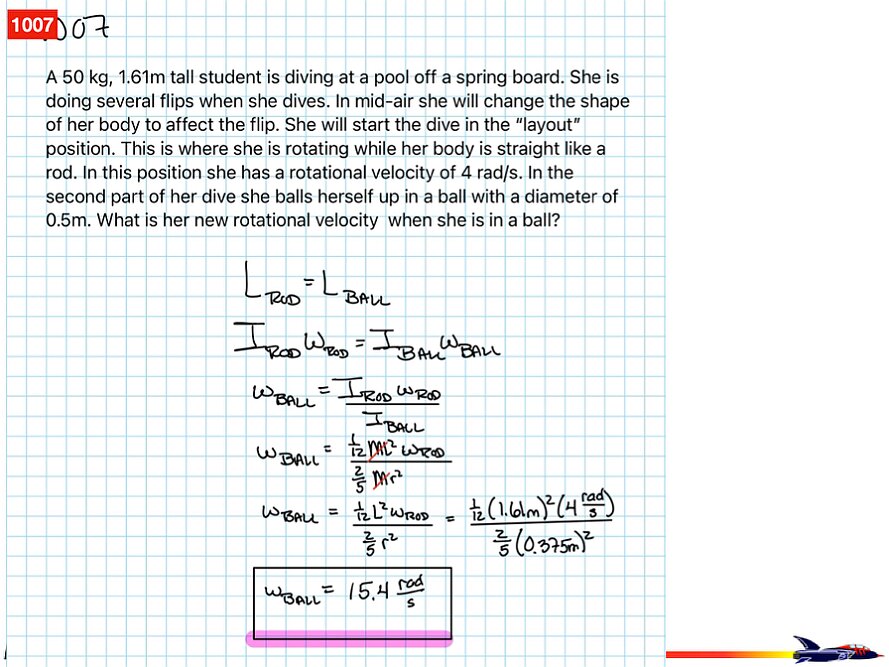 1007
1007
A 50 kg, 1.61m tall student is diving at a pool off a spring board. She is
doing several flips when she dives. In mid-air she will change the shape
of her body to affect the flip. She will start the dive in the “layout”
position. This is where she is rotating while her body is straight like a
rod. In this position she has a rotational velocity of 4 rad/s. In the
second part of her dive she balls herself up in a ball with a diameter of
0.5m. What is her new rotational velocity when she is in a ball?
L_ROD = L_BALL
I_ROD ω_ROD = I_BALL ω_BALL
ω_BALL = I_ROD ω_ROD / I_BALL
ω_BALL = 1/12 ML² ω_ROD / 2/5 Mr²
ω_BALL = 1/12 L² ω_ROD / 2/5 r² = 1/12 (1.61m)² (4 rad/s) / 2/5 (0.375m)²
ω_BALL = 15.4 rad/s